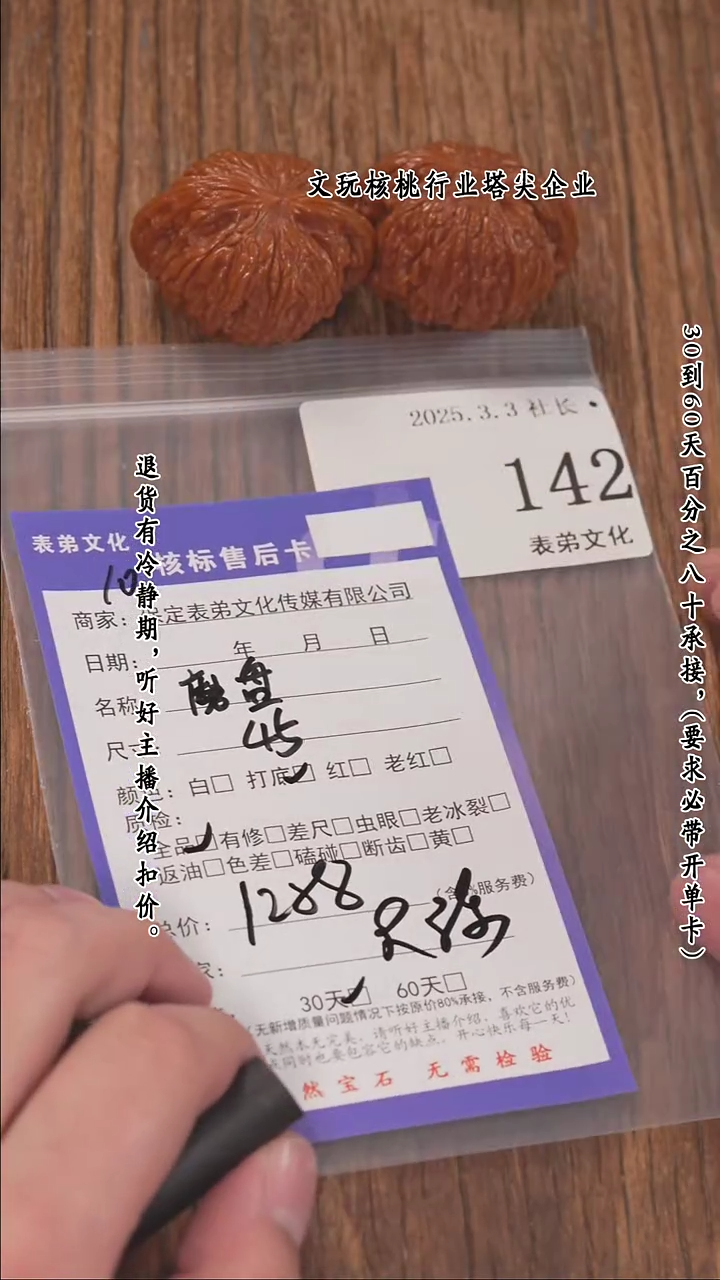 文玩核桃行业塔尖企业
30到60天百分之八十承接，（要求必带开单卡）
退货有冷静期，听好主播介绍扣价。
2025.3.3 社长
142
表弟文化
表弟文化
核标售后卡
10
商家：保定表弟文化传媒有限公司
日期： 年 月 日
名称 磨盘
尺寸 45
颜色：白□ 打底☑ 红□ 老红□
质检：
全品☑有修□差尺□虫眼□老冰裂□
返油□色差□磕碰□断齿□黄□
总价： 1288 （含 %服务费）
家：
30天☑ 60天□
（无新增质量问题情况下按原价80%承接，不含服务费）
天然本无完美，请听好主播介绍，喜欢它的优
点同时也要包容它的缺点，开心快乐每一天！
然宝石 无需检验